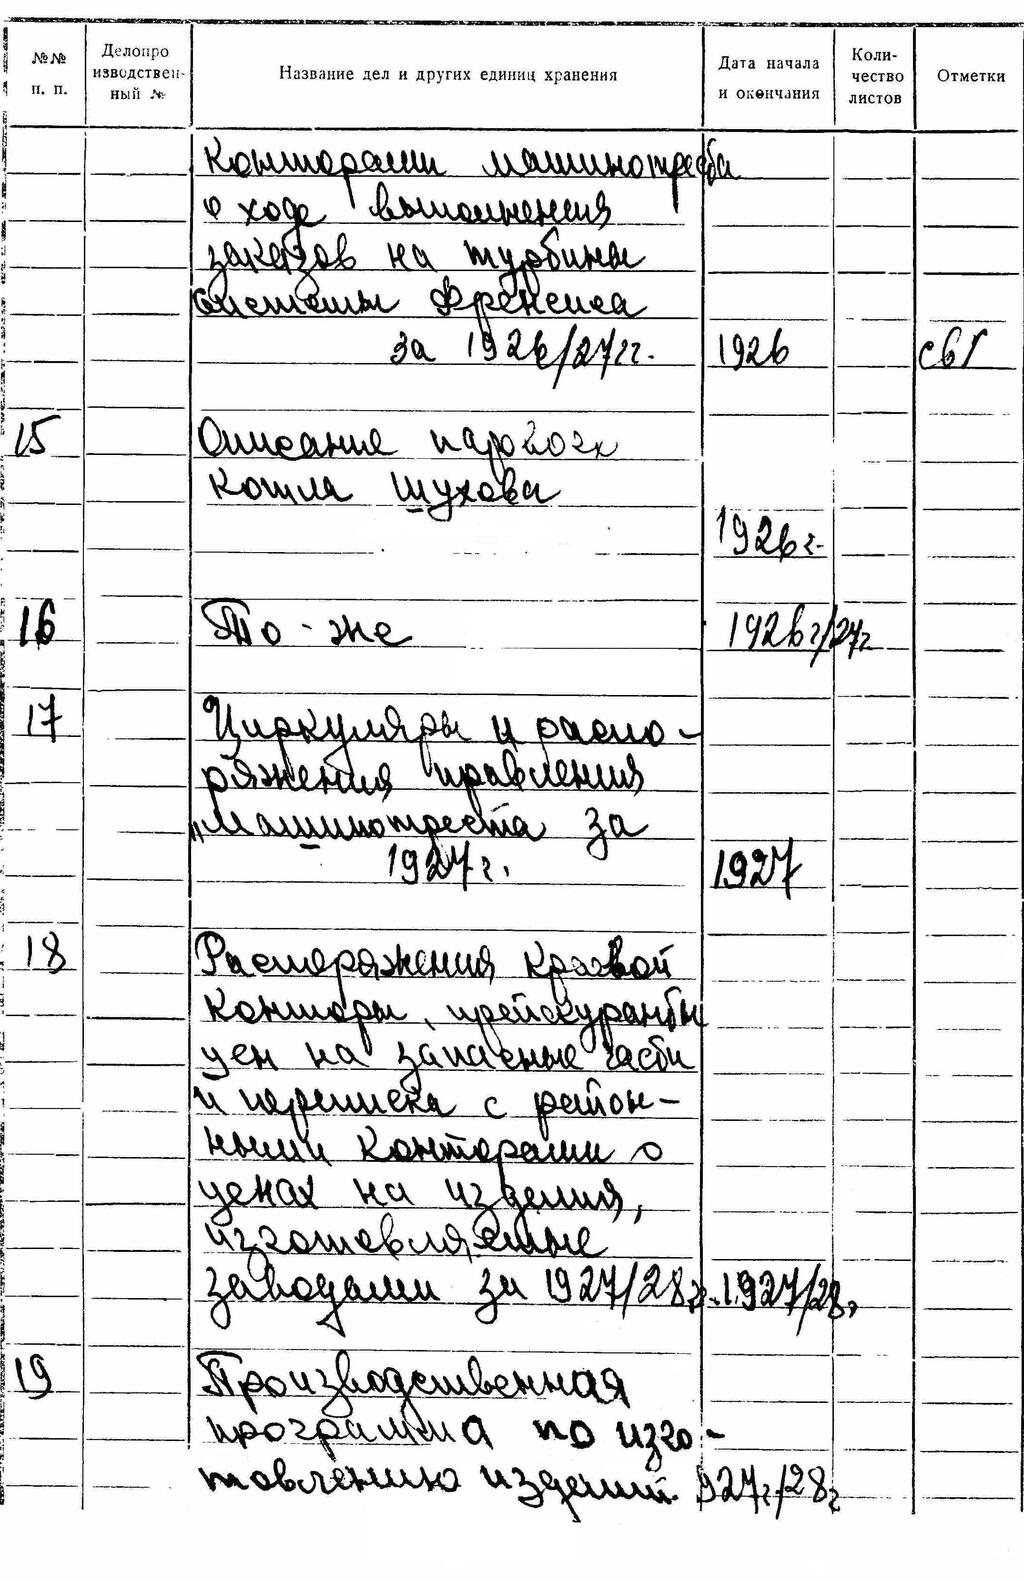 №№ п. п.
Делопроизводственный №
Название дел и других единиц хранения
Дата начала и окончания
Количество листов
Отметки
конторами машинотреста
о ходе выполнения
заказов на турбины
системы Френсиса
за 1926/27гг. 1926
15 Описание парового
котла Шухова
1926г.
16 То-же 1926г/27г
17 Циркуляры и распо-
ряжения правления
"Машинотреста за
1927г. 1927
18 Распоряжения краевой
конторы, прейскуранты
цен на запасные части
и переписка с район-
ными конторами о
ценах на изделия,
изготовляемые
заводами за 1927/28г. 1927/28г
19 Производственная
программа по изго-
товлению изделий 927г./28г